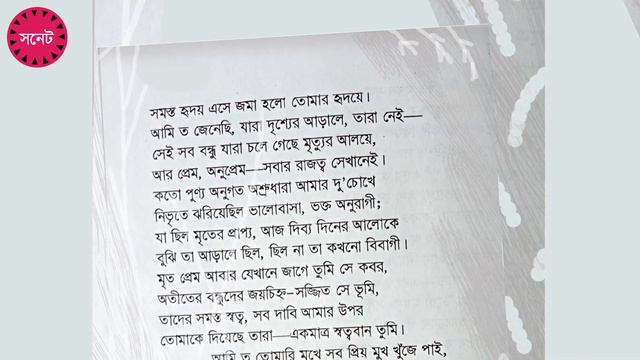 সনেট
সমস্ত হৃদয় এসে জমা হলো তোমার হৃদয়ে।
আমি ত জেনেছি, যারা দৃশ্যের আড়ালে, তারা নেই—
সেই সব বন্ধু যারা চলে গেছে মৃত্যুর আলয়ে,
আর প্রেম, অনুপ্রেম—সবার রাজত্ব সেখানেই।
কতো পুণ্য অনুগত অশ্রুধারা আমার দু'চোখে
নিভৃতে ঝরিয়েছিল ভালোবাসা, ভক্ত অনুরাগী;
যা ছিল মৃতের প্রাপ্য, আজ দিব্য দিনের আলোকে
বুঝি তা আড়ালে ছিল, ছিল না তা কখনো বিবাগী।
মৃত প্রেম আবার যেখানে জাগে তুমি সে কবর,
অতীতের বন্ধুদের জয়চিহ্ন-সজ্জিত সে ভূমি,
তাদের সমস্ত স্বত্ব, সব দাবি আমার উপর
তোমাকে দিয়েছে তারা—একমাত্র স্বত্ববান তুমি।
আমি ত তোমারি মুখে সব প্রিয় মুখ খুঁজে পাই,